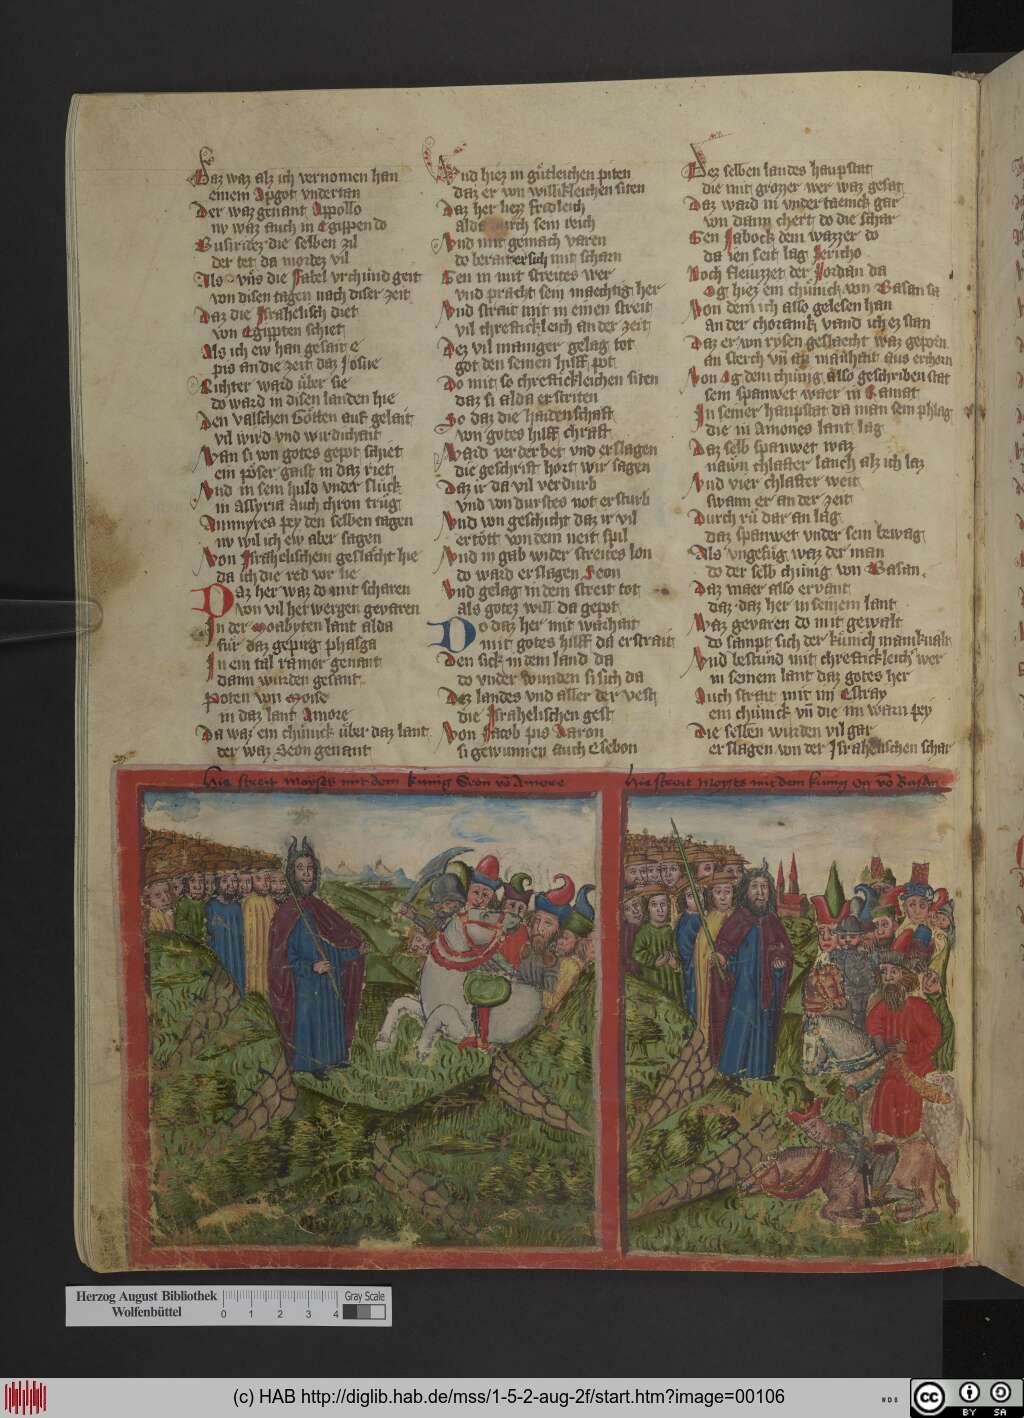 Daz waz alz ich vernomen han
einem Apgot vndertan
Der waz genant Appollo
nv waz auch in Egippen do
Busiridez die selben zil
der tet da mordez vil
Als vns die Fabel vrchund geit
von disen tagen nach diser zeit
Daz die Israhelisch diet
von Egippten schiet
Als ich ew han gesait e
pis an die zeit daz Josue
Richter ward über sie
do ward in disen landen hie
Den valschen Götten auf gelait
vil wird vnd wirdichait
Wan si von gotes gepot schiet
ein pöser gaist in daz riet
Vnd in sein huld vnder sluck
in Assyria auch chron trüg
Ammyres pey den selben tagen
nv wil ich ew aber sagen
Von Israhelischem geslächt hie
da ich die red vor lie
Daz her waz do mit scharen
von vil herwergen gevaren
In der Moabyten lant alda
für daz gepirg phasga
In ein tal ramor genant
dann wurden gesant
Poten von Moise
in daz lant Amore
Da waz ein chünick über daz lant
der waz Seon genant
Vnd hiez in gütleichen piten
daz er von willikleichen siten
Daz her liezz fridleich
alda durch sein reich
Vnd mit gemach varen
do berait er sich mit scharn
Gen in mit streites wer
vnd pracht sein maechtig her
Vnd strait mit in einen streit
vil chreftickleich an der zeit
Dez vil maniger gelag tot
got den seinen hilff pot
Do mit so chreftickleichen siten
daz si alda erstriten
So daz die haidenschaft
von gotes hilff chraft
Ward verderbet vnd erslagen
die geschrift hort wir sagen
Daz ir da vil verdurb
vnd von durstes not ersturb
Vnd von geschicht daz ir vil
ertött von dem neit spil
Vnd in gab wider streites lon
do ward erslagen Seon
Vnd gelag in dem streit tot
als gotez will da gepot
Do daz her mit warhait
mit gotes hilff da erstrait
Den sick in dem land da
do vnder wunden si sich da
Dez landes vnd aller der vest
die Israhelischen gest
Von Jacob pis Aaron
si gewunnen auch Esebon
Dez selben landes haupstat
die mit grozzer wer waz gesat
Daz ward in vndertaenick gar
von dann chert do die schar
Gen Jabock dem wazzer do
da ien seit lag Jericho
Noch fleiuzzet der Jordan da
Og hiez ein chünick von Basan sa
Von dem ich also gelesen han
an der choranik vand ich ez stan
Daz er von rysen geslaecht waz geporn
an sterch vn an manhait aus erchorn
Von Og dem chünig also geschriben stat
sein spanwet waer in Ramat
In seiner haupstat da man sein phlag
die in Amones lant lag
Daz selb spanwet waz
nawn chlafter lanch alz ich laz
Vnd vier chlafter weit
swann er an der zeit
Durch rü dar an lag
daz spanwet vnder sein bewag
Als vngefüg waz der man
do der selb chünig von Basan
Daz maer also ervant
daz daz her in seinem lant
Waz gevaren do mit gewalt
do sampt sich der künich manikualt
Vnd bestund mit chreftickleich wer
in seinem lant daz gotes her
Auch strait mit im Estray
ein chünick vn die im warn pey
Die selben wurden vil gar
erslagen von der Israhelischen schar
Hie streit Moyses mit dem künig Seon vo Amore
Hie streit Moyses mit dem künig Og vo Basan
Herzog August Bibliothek
Wolfenbüttel
0 1 2 3 4
Gray Scale
(c) HAB http://diglib.hab.de/mss/1-5-2-aug-2f/start.htm?image=00106
WDB
cc BY SA